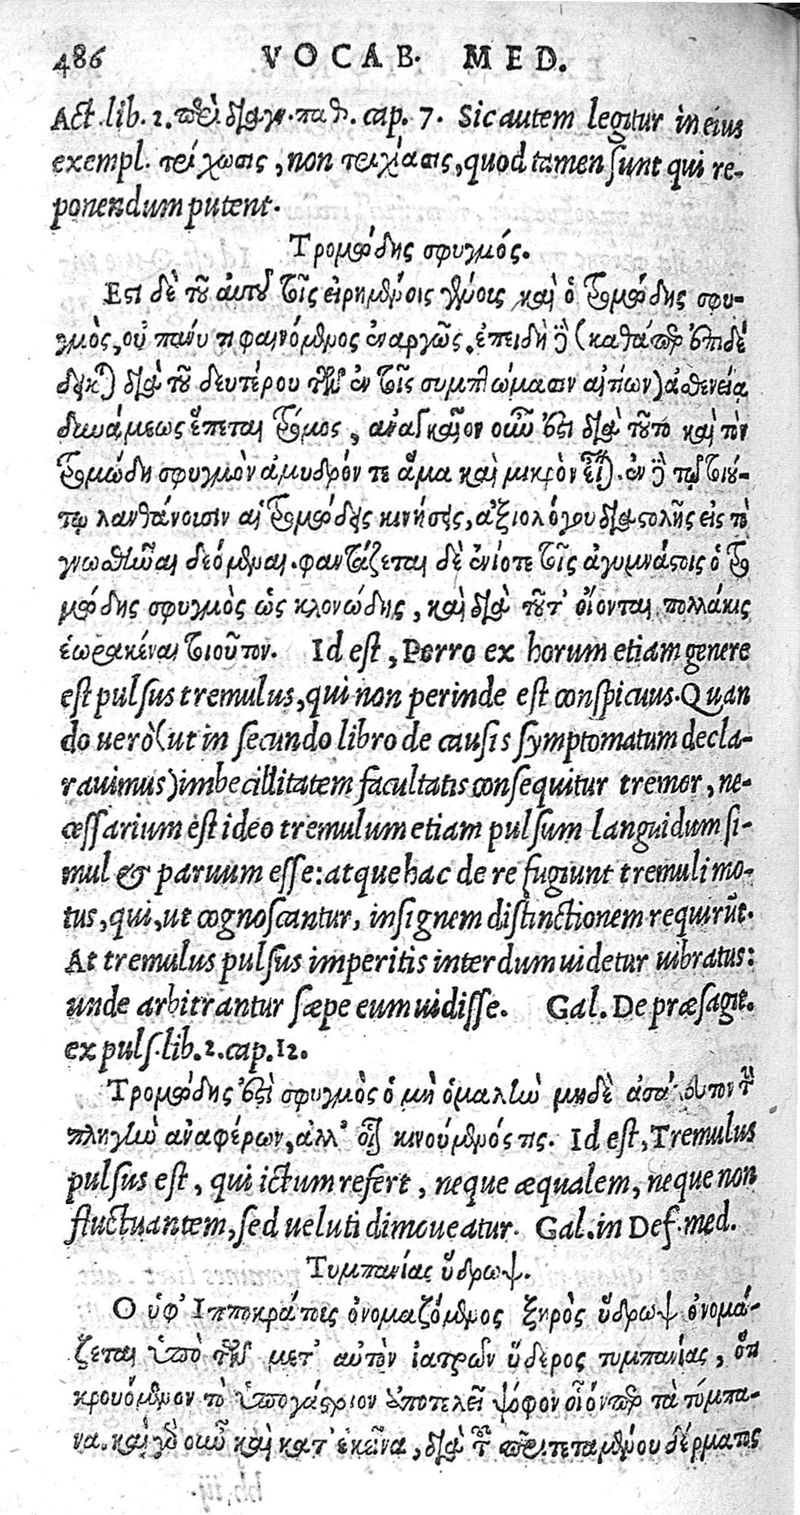 486 VOCAB. MED.
Act. lib. 2. περὶ διαγ. παθ. cap. 7. Sic autem legitur in eius
exempl. τείχωσις, non τειχίασις, quod tamen sunt qui re-
ponendum putent.
Τρομώδης σφυγμός.
Εστι δὲ τοῦ αὐτοῦ τοῖς εἰρημένοις γένους καὶ ὁ τρομώδης σφυ-
γμὸς, οὐ πάνυ τι φαινόμενος ἐναργῶς. ἐπειδὴ γὰρ (καθάπερ
διὰ τοῦ δευτέρου τῶν ἐν τοῖς συμπτώμασιν αἰτίων) ἀσθενείᾳ
δυνάμεως ἕπεται τρόμος, ἀναγκαῖον οὖν ἐστι διὰ τοῦτο καὶ τὸν
τρομώδη σφυγμὸν ἀμυδρόν τε ἅμα καὶ μικρὸν εἶναι. ἐν γὰρ τῷ τοιού-
τῳ λανθάνουσιν αἱ τρομώδεις κινήσεις, ἀξιολόγου διαστολῆς εἰς τὸ
γνωσθῆναι δεόμεναι. φαντάζεται δὲ ἐνίοτε τοῖς ἀγυμνάστοις ὁ τρο
μώδης σφυγμὸς ὡς κλονώδης, καὶ διὰ τοῦτ' οἴονται πολλάκις
ἑωρακέναι τοιοῦτον. Id est, Porro ex horum etiam genere
est pulsus tremulus, qui non perinde est conspicuus. Quan
do uerò (ut in secundo libro de causis symptomatum decla-
rauimus) imbecillitatem facultatis consequitur tremor, ne-
cessarium est ideo tremulum etiam pulsum languidum si-
mul & paruum esse: atque hac de re fugiunt tremuli mo-
tus, qui, ut cognoscantur, insignem distinctionem requirūt.
At tremulus pulsus imperitis interdum uidetur uibratus:
unde arbitrantur sæpe eum uidisse. Gal. De præsagit.
ex puls. lib. 2. cap. 12.
Τρομώδης ἐστὶ σφυγμὸς ὁ μὴ ὁμαλὴν μηδὲ τὴν
πληγὴν ἀναφέρων, ἀλλ' οἷον κινούμενός τις. Id est, Tremulus
pulsus est, qui ictum refert, neque æqualem, neque non
fluctuantem, sed ueluti dimoueatur. Gal. in Def. med.
Τυμπανίας ὕδρωψ.
Ο ὑφ' Ιπποκράτους ὀνομαζόμενος ξηρὸς ὕδρωψ ὀνομά-
ζεται ὑπὸ τῶν μετ' αὐτὸν ἰατρῶν ὕδερος τυμπανίας, ὅτι
κρουόμενον τὸ ὑπογάστριον ἀποτελεῖ ψόφον οἷόνπερ τὰ τύμπα-
να. καὶ γὰρ οὖν καὶ κατ' ἐκεῖνα, διὰ τοῦ περιτεταμένου δέρματος